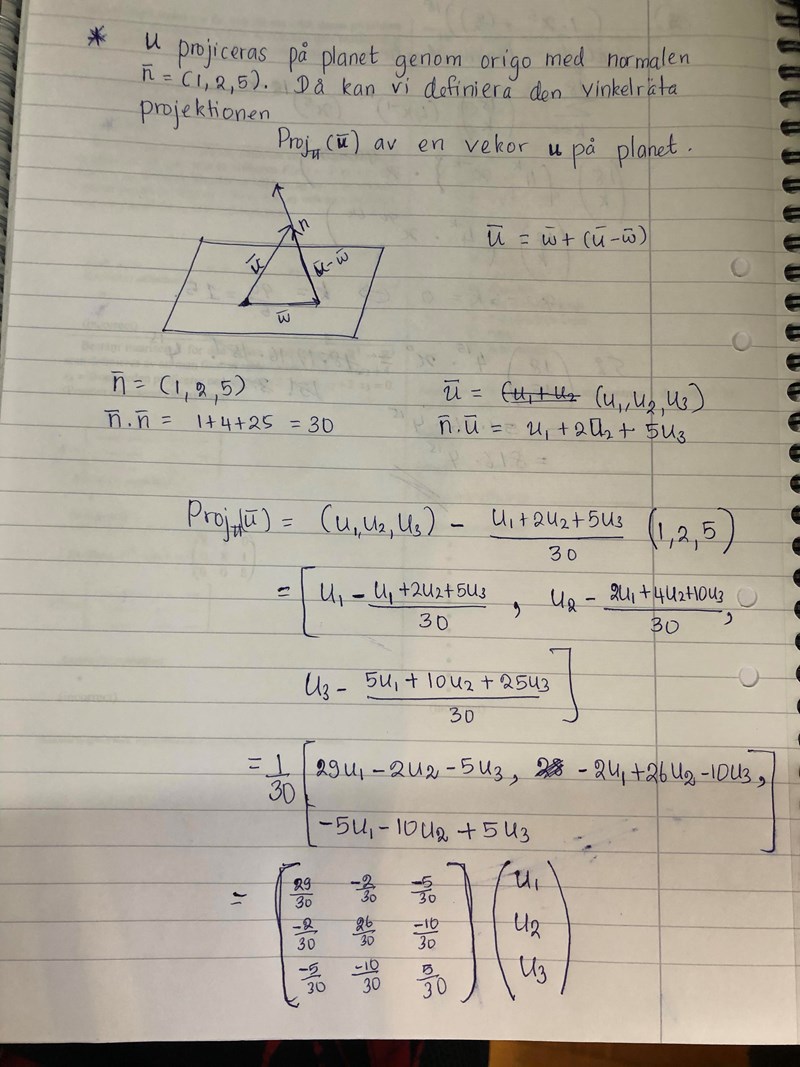 * u projiceras på planet genom origo med normalen
n̄ = (1, 2, 5). Då kan vi definiera den vinkelräta
projektionen
Proj_π(ū) av en vekor u på planet.
n
ū
ū-w̄
w̄
ū = w̄ + (ū - w̄)
n̄ = (1, 2, 5)
n̄.n̄ = 1+4+25 = 30
ū = (u₁, u₂, u₃)
n̄.ū = u₁ + 2u₂ + 5u₃
Proj_π(ū) = (u₁, u₂, u₃) - (u₁+2u₂+5u₃)/30 (1, 2, 5)
= [u₁ - (u₁+2u₂+5u₃)/30 , u₂ - (2u₁+4u₂+10u₃)/30 ,
u₃ - (5u₁+10u₂+25u₃)/30]
= 1/30 [29u₁-2u₂-5u₃, -2u₁+26u₂-10u₃,
-5u₁-10u₂+5u₃]
= ( 29/30 -2/30 -5/30 ) ( u₁ )
-2/30 26/30 -10/30 u₂
-5/30 -10/30 5/30 u₃